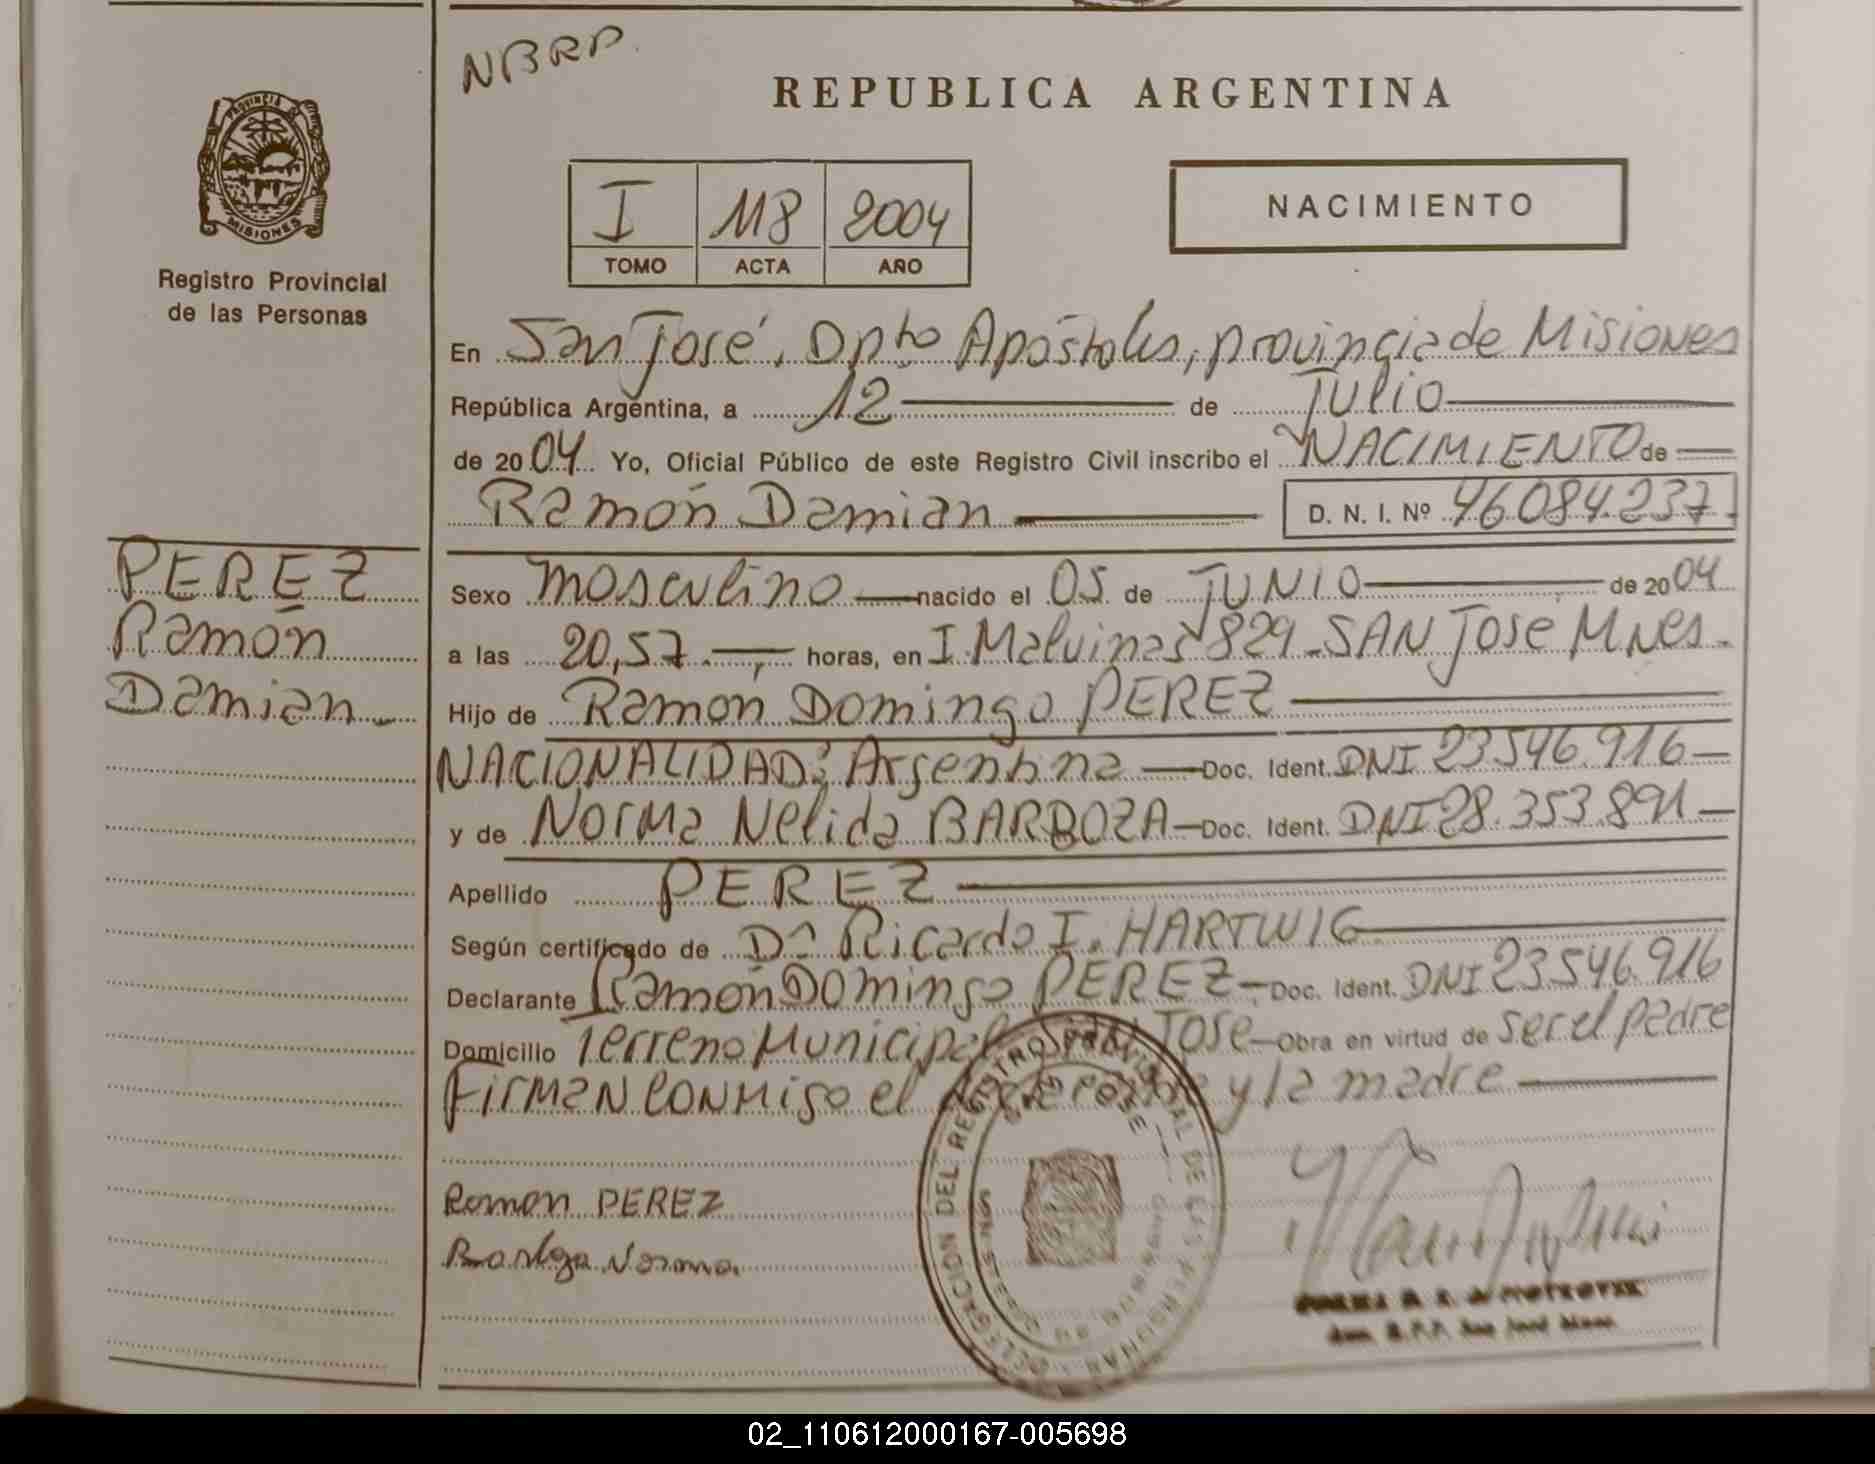 NBRP.
REPUBLICA ARGENTINA
PROVINCIA
MISIONES
Registro Provincial
de las Personas
I 118 2004
TOMO ACTA AÑO
NACIMIENTO
En San José, Dpto Apóstoles, provincia de Misiones
República Argentina, a 12 de Julio
de 2004 Yo, Oficial Público de este Registro Civil inscribo el NACIMIENTO de
Ramón Damian D. N. I. Nº 46084.237
PEREZ
Ramón
Damian
Sexo masculino nacido el 05 de JUNIO de 2004
a las 20,57 horas, en I. Malvinas 829 - SAN JOSE MNES.
Hijo de Ramon Domingo PEREZ
NACIONALIDAD: Argentina Doc. Ident. DNI 23546.916
y de Norma Nelida BARBOZA Doc. Ident. DNI 28.353.891
Apellido PEREZ
Según certificado de Dr. Ricardo I. HARTWIG
Declarante Ramón DOMingo PEREZ Doc. Ident. DNI 23.546.916
Domicilio Terreno Municipal San JOSE Obra en virtud de ser el padre
FIRMAN CONMIGO el declarante y la madre
Ramon PEREZ
Norma.
DELEGACION DEL REGISTRO PROVINCIAL DE LAS PERSONAS
SAN JOSE
MISIONES
02_110612000167-005698